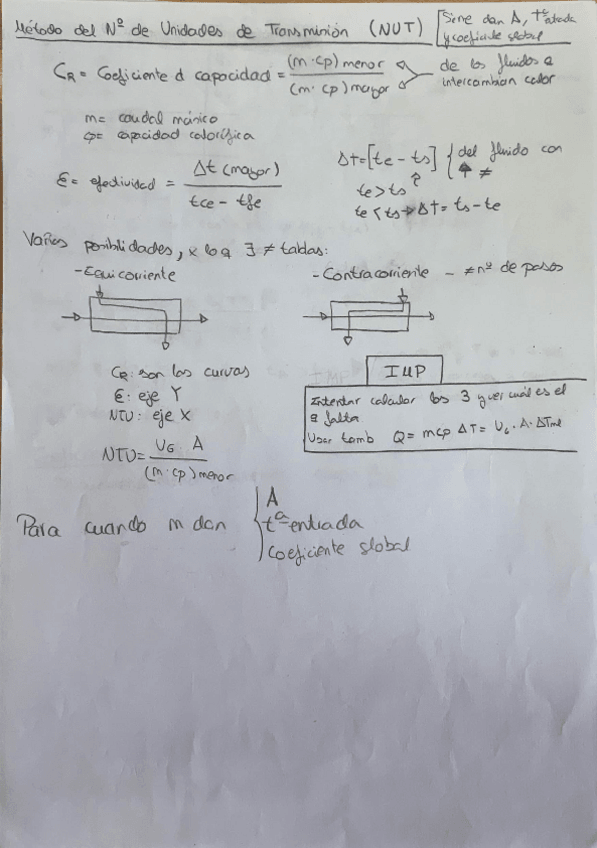 Método del Nº de Unidades de Transmisión (NUT) [Si me dan A, tª entrada y coeficiente global
CR = Coeficiente d capacidad = (m·cp) menor / (m·cp) mayor
de los fluidos q intercambian calor
m = caudal másico
cp = capacidad calorífica
Є = efectividad = Δt (mayor) / tce - tfe
Δt = [te - ts] { del fluido con ↑ ≠
te > ts
te < ts → Δt = ts - te
Varias posibilidades, x lo q ∃ ≠ tablas:
- Equicorriente
- Contracorriente - ≠ nº de pasos
CR: son las curvas
Є: eje Y
NTU: eje X
NTU = UG A / (m·cp) menor
IMP
Intentar calcular los 3 y ver cuál es el q falta
Usar tamb Q = mcp ΔT = UG · A · ΔTml
Para cuando m dan { A
tª entrada
coeficiente global